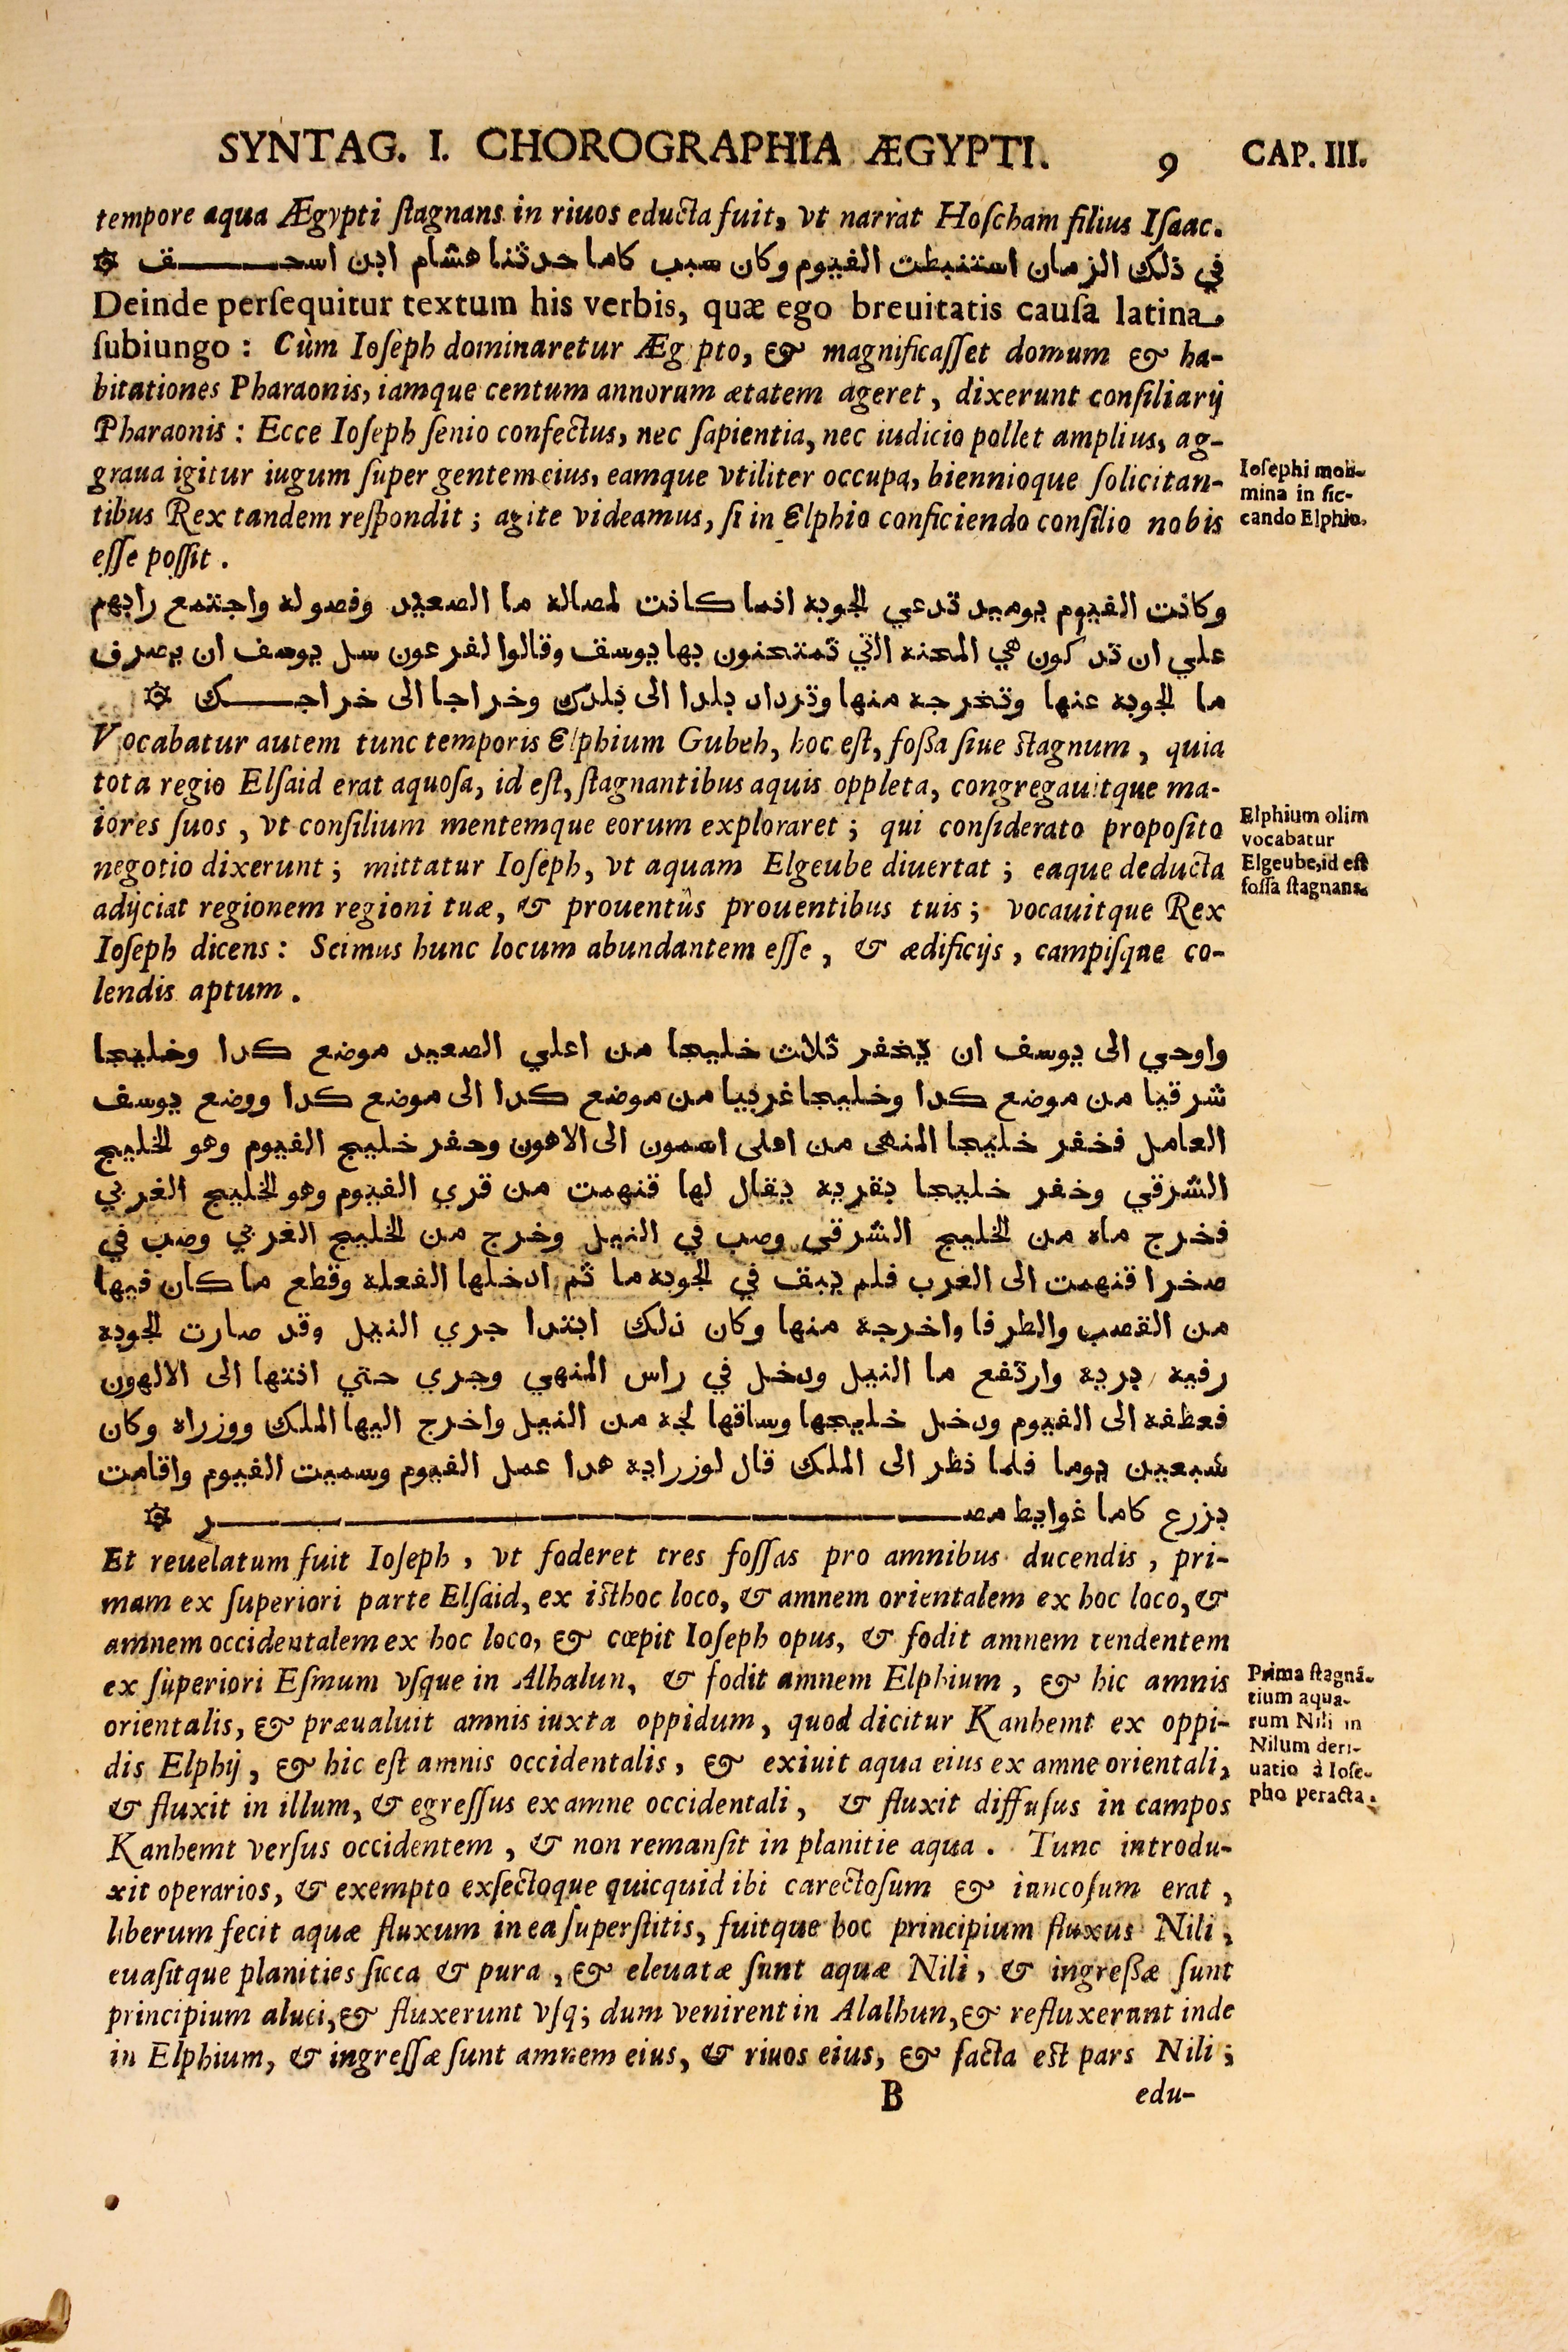 SYNTAG. I. CHOROGRAPHIA ÆGYPTI. 9 CAP. III.
tempore aqua Ægypti ſtagnans in riuos educta fuit, vt narrat Hoſcham filius Iſaac.
في ذلك الزمان استنبطت الفيوم وكان سبب كاما حدثنا هشام ابن اسحـــق ۞
Deinde perſequitur textum his verbis, quæ ego breuitatis cauſa latina
ſubiungo : Cùm Ioſeph dominaretur Æg pto, & magnificaſſet domum & ha-
bitationes Pharaonis, iamque centum annorum ætatem ageret, dixerunt conſiliarij
Pharaonis : Ecce Ioſeph ſenio confectus, nec ſapientia, nec iudicio pollet amplius, ag-
graua igitur iugum ſuper gentem eius, eamque vtiliter occupa, biennioque ſolicitan-
tibus Rex tandem reſpondit ; agite videamus, ſi in Elphio conficiendo conſilio nobis
eſſe poſſit .
Ioſephi moli-
mina in ſic-
cando Elphio.
وكانت الفيوم يوميد تدعي الجوبة انما كانت لمصالة ما الصعيد وفصولة واجتمع رايهم
علي ان تد كون هي المحنة التي تمتحنون بها يوسف وقالوا لفرعون سل يوسف ان يصرف
ما الجوبة عنها وتخرجة منها وترداد بلدا الى بلدك وخراجا الى خراجـــك ۞
Vocabatur autem tunc temporis Elphium Gubeh, hoc eſt, foſſa ſiue ſtagnum, quia
tota regio Elſaid erat aquoſa, id eſt, ſtagnantibus aquis oppleta, congregauitque ma-
iores ſuos , vt conſilium mentemque eorum exploraret ; qui conſiderato propoſito
negotio dixerunt ; mittatur Ioſeph, vt aquam Elgeube diuertat ; eaque deducta
adijciat regionem regioni tuæ, & prouentûs prouentibus tuis ; vocauitque Rex
Ioſeph dicens : Scimus hunc locum abundantem eſſe , & ædificijs , campiſque co-
lendis aptum .
Elphium olim
vocabatur
Elgeube, id eſt
foſſa ſtagnans.
واوحي الى يوسف ان يخفر ثلاث خليجا من اعلي الصعيد موضع كدا وخليجا
شرقيا من موضع كدا وخليجا غربيا من موضع كدا الى موضع كدا ووضع يوسف
العامل فخفر خليجا المنهى من اعلى اسمون الى الاهون وحفر خليج الفيوم وهو الخليج
الشرقي وخفر خليجا بقرية يقال لها قنهمت من قري الفيوم وهو الخليج الغربي
فخرج ماه من الخليج الشرقى وصب في النيل وخرج من الخليج الغربي وصب في
صخرا قنهمت الى الغرب فلم يبق في الجوبة ما ثم ادخلها الفعلة وقطع ما كان فيها
من القصب والطرفا واخرجة منها وكان ذلك ابتدا جري النيل وقد صارت الجوبة
رفية برية وارتفع ما النيل ودخل في راس المنهي وجري حتي انتها الى الالهون
فعظفة الى الفيوم ودخل خليجها وساقها لجة من النيل واخرج اليها الملك ووزراه وكان
شبعين يوما فلما نظر الى الملك قال لوزراية هدا عمل الفيوم وسميت الفيوم واقامت
بزرع كاما غوايط مصـــــــر ۞
Et reuelatum fuit Ioſeph , vt foderet tres foſſas pro amnibus ducendis , pri-
mam ex ſuperiori parte Elſaid, ex iſthoc loco, & amnem orientalem ex hoc loco, &
amnem occidentalem ex hoc loco, & cœpit Ioſeph opus, & fodit amnem tendentem
ex ſuperiori Eſmum vſque in Alhalun, & fodit amnem Elphium , & hic amnis
orientalis, & præualuit amnis iuxta oppidum, quod dicitur Kanhemt ex oppi-
dis Elphij , & hic eſt amnis occidentalis , & exiuit aqua eius ex amne orientali,
& fluxit in illum, & egreſſus ex amne occidentali , & fluxit diffuſus in campos
Kanhemt verſus occidentem , & non remanſit in planitie aqua . Tunc introdu-
xit operarios, & exempto exſectoque quicquid ibi carectoſum & iuncoſum erat ,
liberum fecit aquæ fluxum in ea ſuperſtitis, fuitque hoc principium fluxus Nili ,
euaſitque planities ſicca & pura , & eleuatæ ſunt aquæ Nili , & ingreſſæ ſunt
principium aluei, & fluxerunt vſq; dum venirent in Alalhun, & refluxerunt inde
in Elphium, & ingreſſæ ſunt amnem eius, & riuos eius, & facta eſt pars Nili ;
Prima ſtagnã-
tium aqua-
rum Nili in
Nilum deri-
uatio à Ioſe-
pho peracta.
B edu-